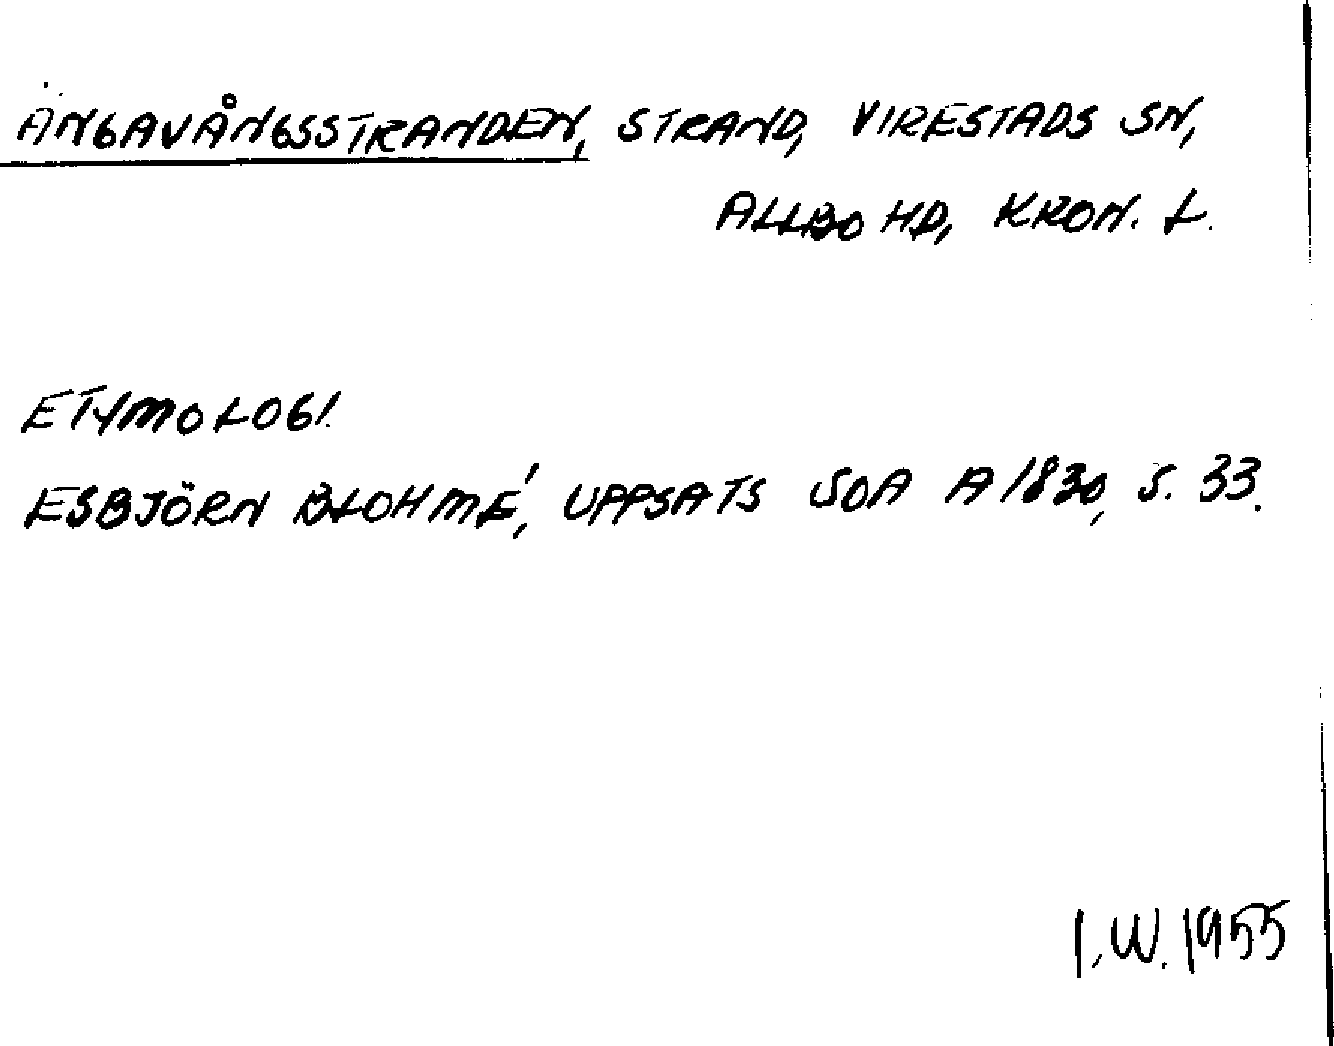 ÄNGAVÅNGSSTRANDEN, STRAND, VIRESTADS SN,
ALLBO HD, KRON. L.
ETYMOLOGI.
ESBJÖRN BLOHMÉ, UPPSATS SOA A 1830, S. 33.
I.W. 1955